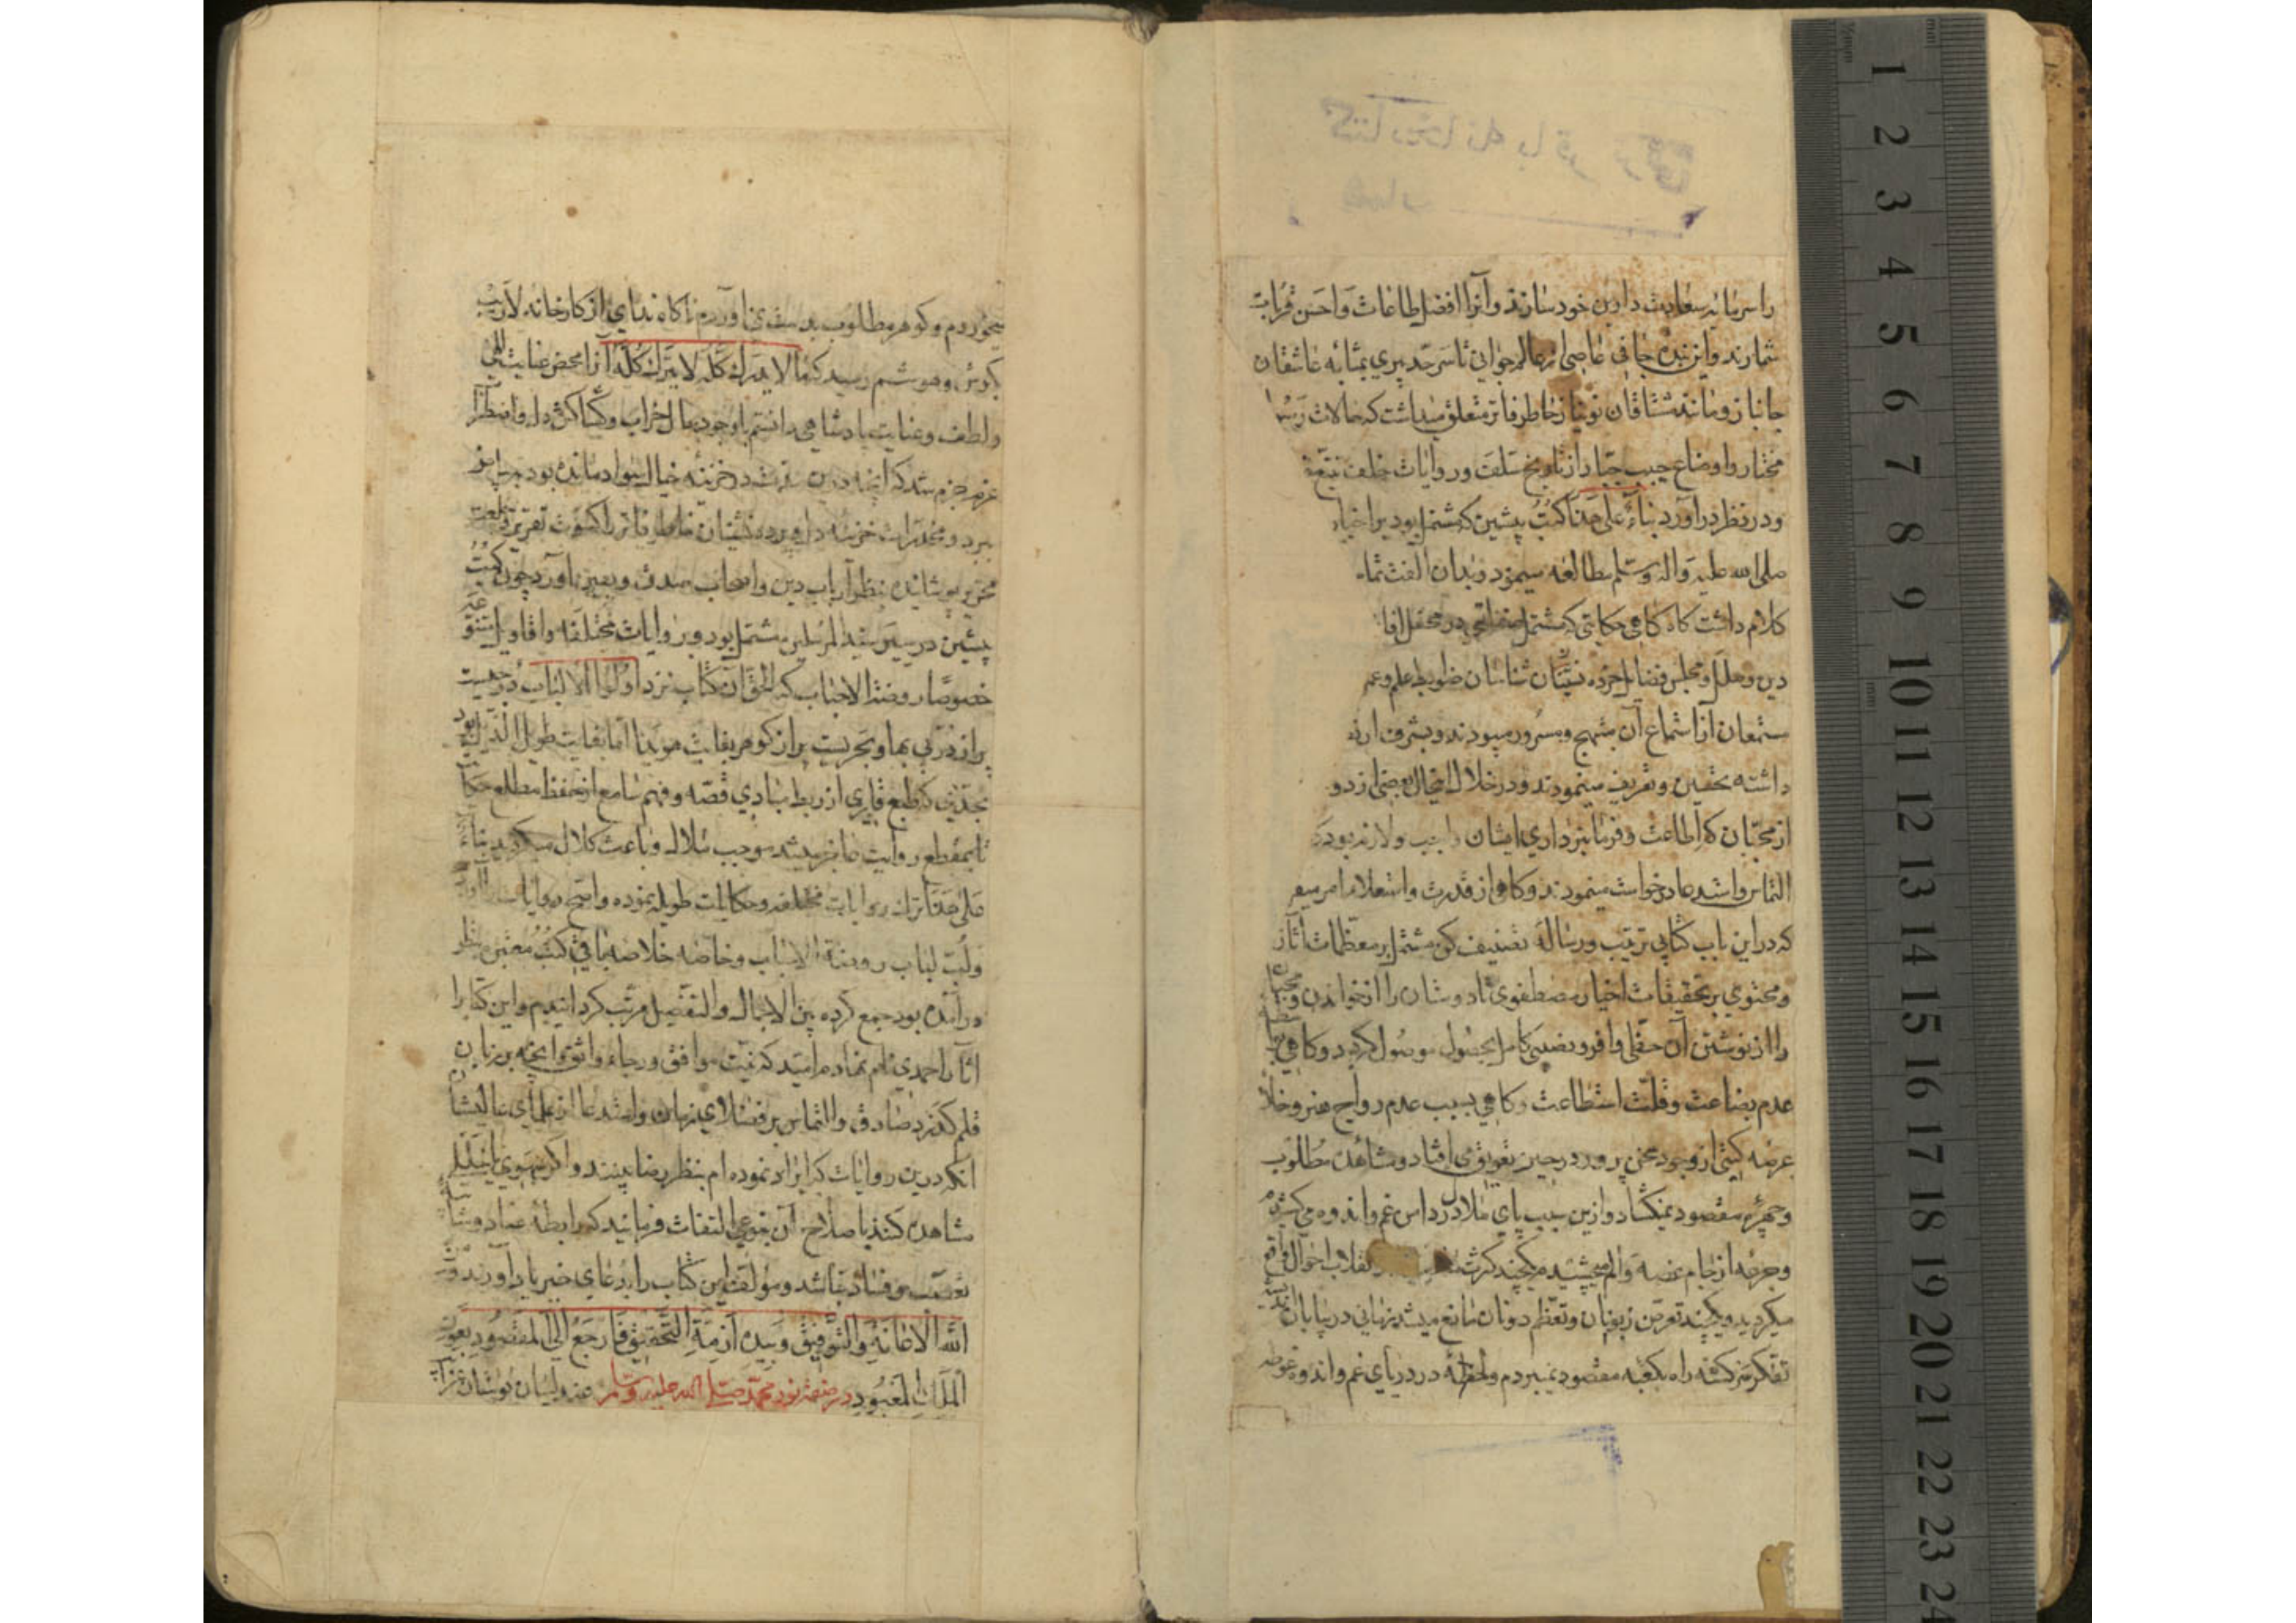 را سرمایه سعادت دارین خود سازند و آنرا افضل طاعات و احسن قربات
شمارند و این بنده جانی عاصی از عالم جوانی تا سرحد پیری بمثابه عاشقان
جانباز و مانند مشتاقان نونیاز خاطر فاتر متعلق میداشت که حالات رسول
مختار و اوضاع حبیب جبار از تاریخ سلف و روایات خلف تتبع
و در نظر درآورد بناء علی هذا کتب پیشین که مشتمل بود بر اخبار
صلی الله علیه وآله وسلم مطالعه مینمود و بدان الفت تمام
کلام داشت گاه گاهی حکایتی که مشتمل در محفل
دین و ملل و مجلس فضلا خرده شناسان ضوابط علم و عمل
مستمعان از استماع آن مبتهج و مسرور میبودند و بشرف
داشته تحسین و تعریف مینمودند و در خلال این حال بعضی از دو
از محبان که اطاعت و فرمانبرداری ایشان واجب و لازم بود
التماس و استدعا درخواست مینمودند و گاهی از قدرت و استعلا امر میفر
که در این باب کتابی ترتیب و رساله تصنیف کن مشتمل بر معظمات آثار
و محتوی بر تحقیقات اخبار مصطفوی تا دوستان را از خواندن و محبان
را از نوشتن آن حظی وافر و نصیبی کامل بحصول موصول گردد و گاهی
عدم بضاعت و قلت استطاعت و گاهی بسبب عدم رواج هنر و خلا
عرصه گیتی از وجود هنر پرور در حیز تعویق می افتاد و مشاهده مطلوب
و چهره مقصود نمیگشاد و ازین سبب پای ملال در دامن غم و اندوه می کشیدم
و جرعه از جام غصه و الم میچشیدم هر چند کرت انقلاب احوال واقع
میگردید و هر چند تعرض زبونان و تعظم دونان مانع میشد زمانی در بیابان
تفکر سرگشته راه بکعبه مقصود نمیبردم و لحظه در دریای غم و اندوه غوطه
میخوردم و گوهر مطلوب بدست نمی آوردم ناگاه ندای از کارخانه لاریب
بگوش هوشم رسید که ما لا یدرک کله لا یترک کله آنرا محض عنایت الهی
و لطف و عنایت پادشاهی دانستم با وجود مال خراب و کثاکش دل و اضطراب
عزم جزم شد که آنچه درین مدت در خزینه خیال سواد مانده بود به بیاض
ببرد و مخدرات خزینه دل و پرده نشینان خاطر فاتر را کسوت تقریر و خلعت
تحریر پوشانیده بنظر ارباب دین و اصحاب صدق و یقین درآورد چون کتب
پیشین در سیر سید المرسلین مشتمل بود بر روایات مختلفه و اقاویل متنوعه
خصوصا روضة الاحباب که الحق آن کتاب نزد اولوا الالباب درجیست
پر از در بی بها و بحریست پر از گوهر بغایت هویدا اما بغایت طویل الذیل بود
بحدی که طبع قاری از ربط مبادی قصه و فهم سامع از حفظ مطلع حکا
تا بمقطع روایت عاجز میشد موجب ملال و باعث کلال میگردید بناء
علی هذا ترک روایات مختلفه و حکایات طویله نموده و اصح روایات
و لب لباب روضة الاحباب و خاصه خلاصه باقی کتب معتبره بنظر
درآمده بود جمع کرده بین الاجمال و التفصیل مرتب گردانیدیم و این کتاب را
آثار احمدی نام نهادم امید که نیت موافق و رجاء واثق آنچه بر زبان
قلم گذرد صادق و التماس بر فضلای زمان و استدعا از علمای عالیشان
آنکه درین روایات که ایراد نموده ام بنظر رضا ببینند و اگر سهوی یا خللی
مشاهده کنند با صلاح آن بنوعی التفات فرمایند که رابطه عناد و شائبه
تعصب و فساد نباشد و مؤلف این کتاب را بدعای خیر یاد آورند و من
الله الاعانة والتوفیق وبیده ازمة التحقیق فارجع الی المقصود بعون
الملک المعبود در صفت نور محمد صلی الله علیه وسلم عندلیبان بوستان